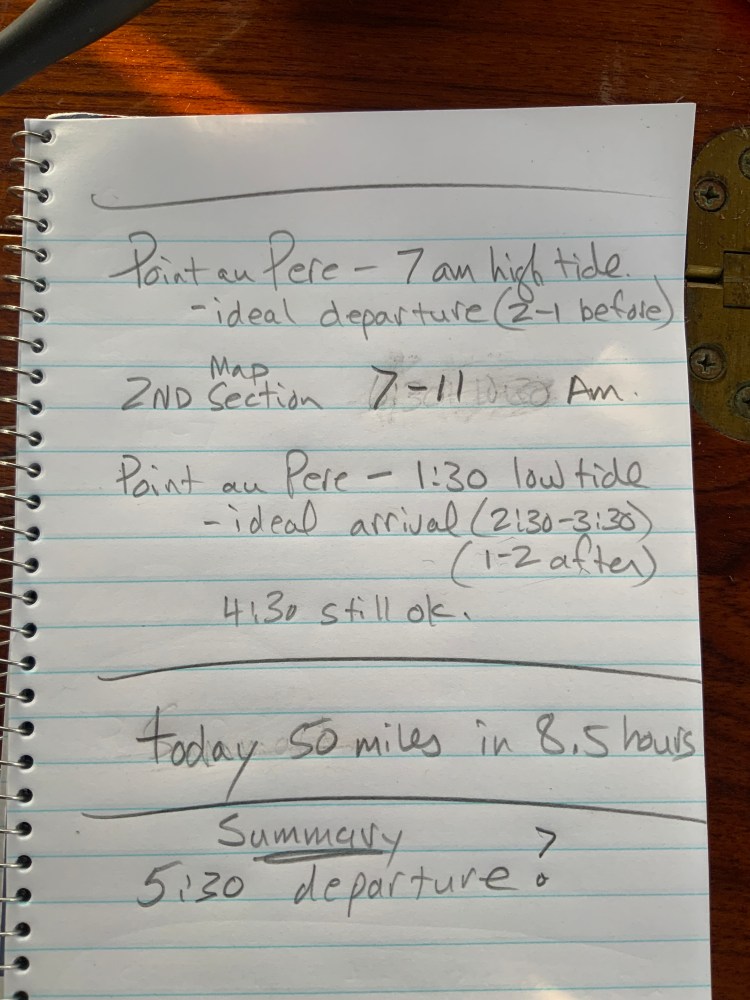 Point au Pere - 7 am high tide.
- ideal departure (2-1 before)
Map
2ND Section 7-11 Am.
Point au Pere - 1:30 low tide
- ideal arrival (2:30-3:30)
(1-2 after)
4:30 still ok.
today 50 miles in 8.5 hours
Summary
5:30 departure?